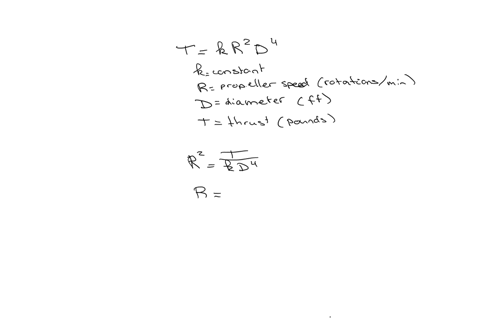 T = kR²D⁴
k = constant
R = propeller speed (rotations/min)
D = diameter (ft)
T = thrust (pounds)
R² = T/kD⁴
R =